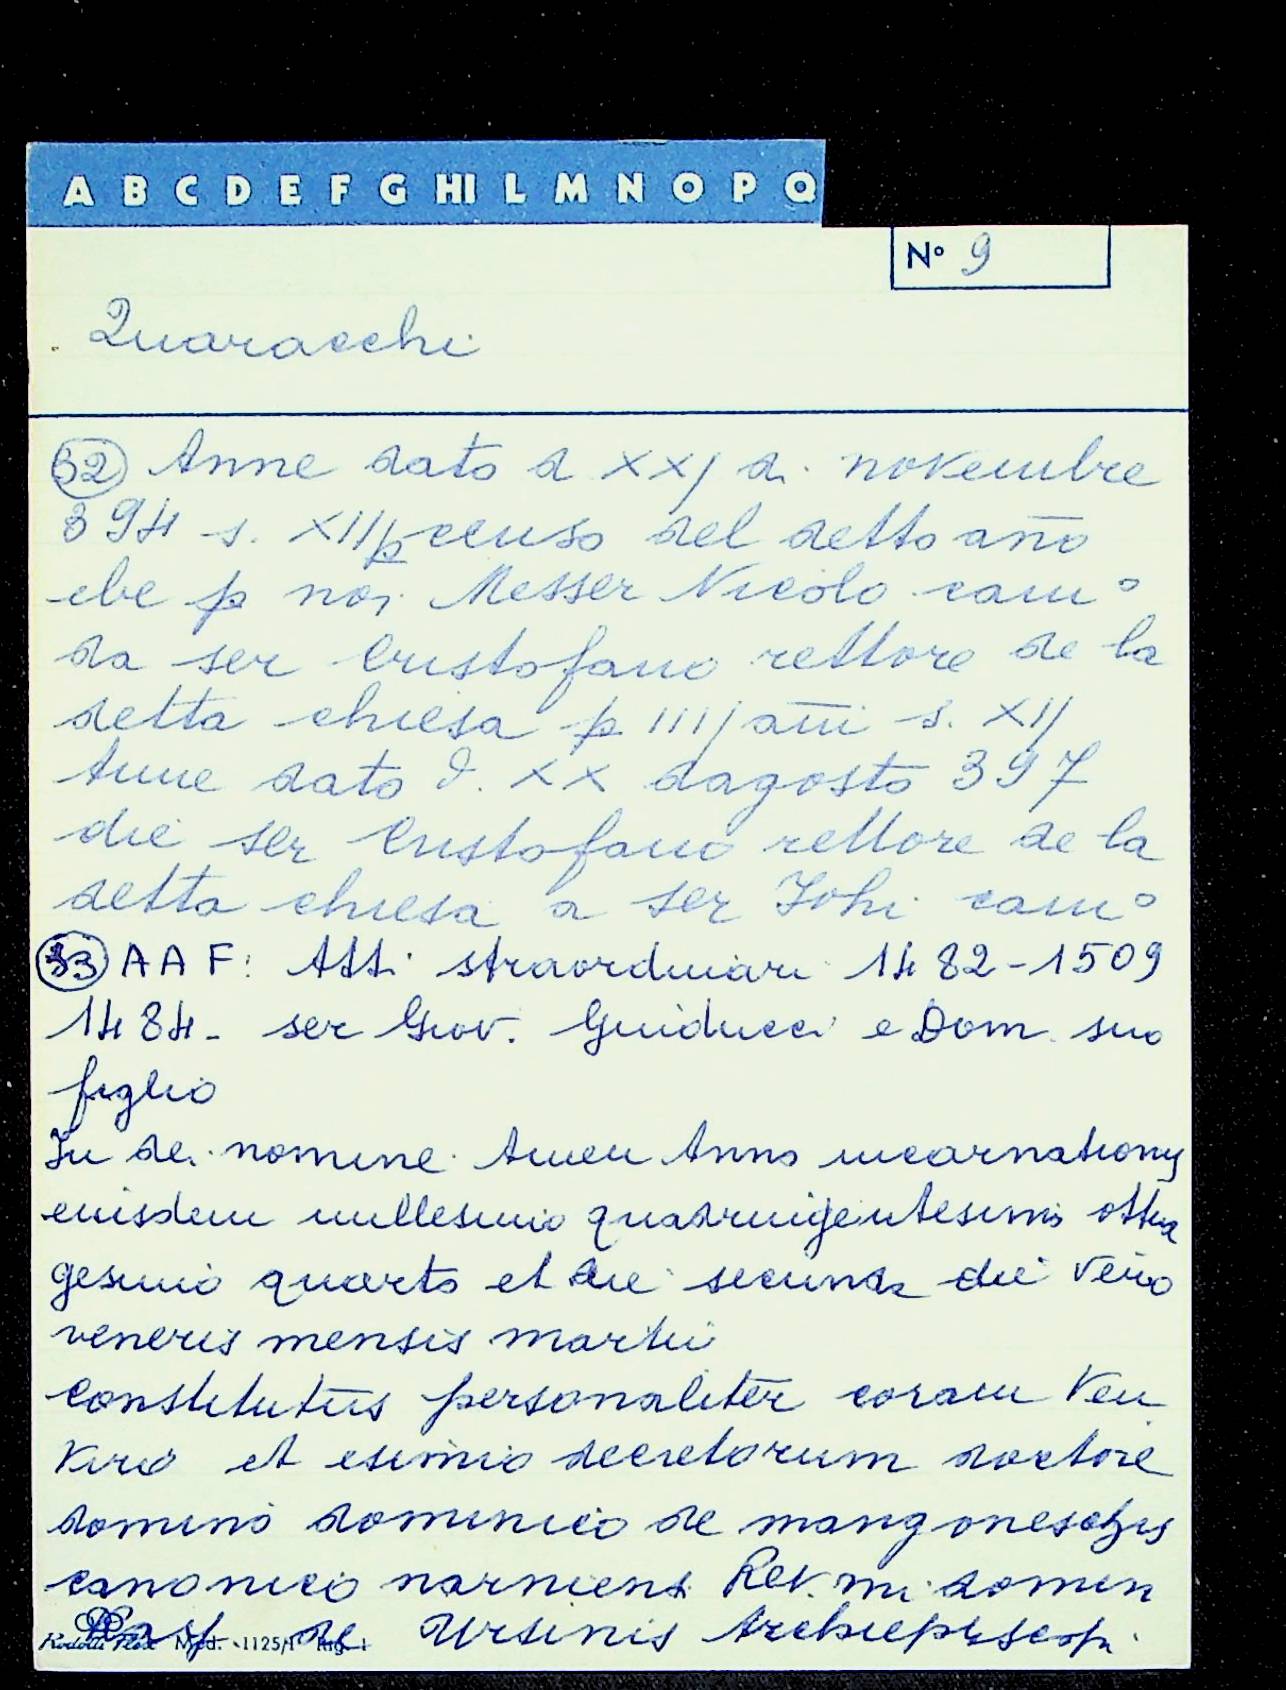 A B C D E F G HI L M N O P Q
N° 9
Quaracchi
32 Anne dato a XXJ di novembre
394 s. XIIJ p censo del detto año
ebe p noi Messer Nicolo cam°
da ser Cristofano rettore de la
detta chiesa p IIIJ añi s. XIJ
Anne dato d. XX dagosto 397
die ser Cristofano rettore de la
detta chiesa a ser Johi cam°
33 AAF: Atti straordinari 1482-1509
1484 - ser Giov. Guiducci e Dom. suo
figlio
In dei nomine Amen Anno incarnationis
eiusdem millesimo quadringentesimo ottua
gesimo quarto et die secunda die vero
veneris mensis martii
Constitutus personaliter coram Ven
Viro et esimio decretorum doctore
domino dominico de mangoneschis
canonico narniens Rev. mi domin
de Ursinis Archiepiscopi
Mod. 1125/1 Rig. 1